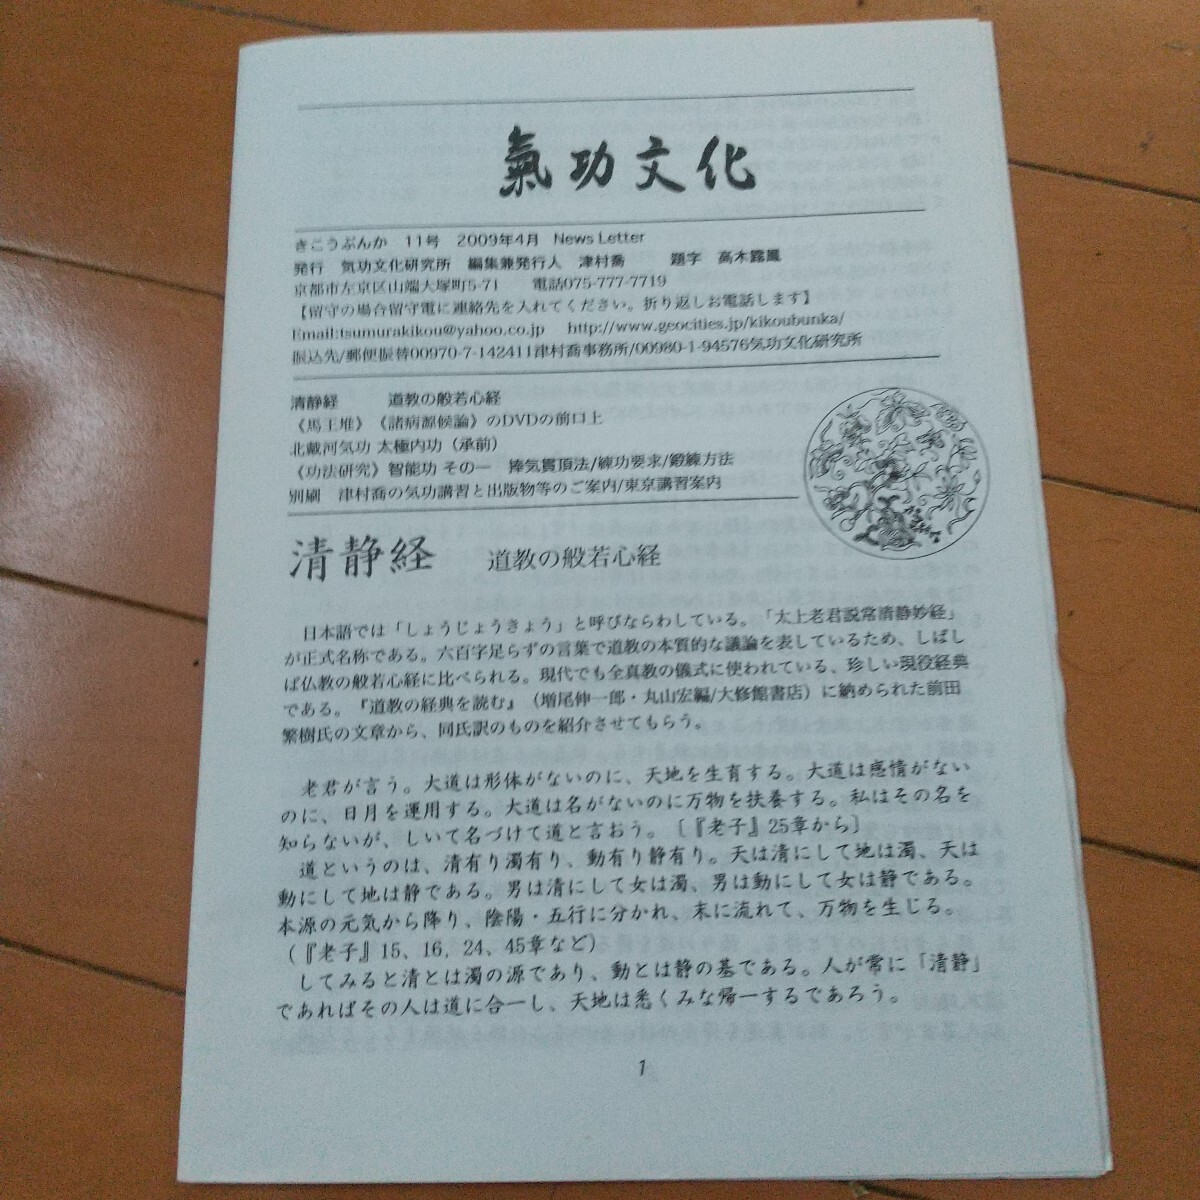 氣功文化
きこうぶんか　11号　2009年4月　News Letter
発行　気功文化研究所　編集兼発行人　津村喬　　題字　高木露風
京都市左京区山端大塚町5-71　　電話075-777-7719
【留守の場合留守電に連絡先を入れてください。折り返しお電話します】
Email:tsumurakikou@yahoo.co.jp　http://www.geocities.jp/kikoubunka/
振込先/郵便振替00970-7-142411津村喬事務所/00980-1-94576気功文化研究所
清静経　　道教の般若心経
《馬王堆》《諸病源候論》のDVDの前口上
北戴河気功 太極内功（承前）
《功法研究》智能功 その一　捧気貫頂法/練功要求/鍛練方法
別刷　津村喬の気功講習と出版物等のご案内/東京講習案内
清静経　道教の般若心経
日本語では「しょうじょうきょう」と呼びならわしている。「太上老君説常清静妙経」
が正式名称である。六百字足らずの言葉で道教の本質的な議論を表しているため、しばし
ば仏教の般若心経に比べられる。現代でも全真教の儀式に使われている、珍しい現役経典
である。『道教の経典を読む』（増尾伸一郎・丸山宏編/大修館書店）に納められた前田
繁樹氏の文章から、同氏訳のものを紹介させてもらう。
老君が言う。大道は形体がないのに、天地を生育する。大道は感情がない
のに、日月を運用する。大道は名がないのに万物を扶養する。私はその名を
知らないが、しいて名づけて道と言おう。〔『老子』25章から〕
道というのは、清有り濁有り、動有り静有り。天は清にして地は濁、天は
動にして地は静である。男は清にして女は濁、男は動にして女は静である。
本源の元気から降り、陰陽・五行に分かれ、末に流れて、万物を生じる。
（『老子』15、16, 24、45章など）
してみると清とは濁の源であり、動とは静の基である。人が常に「清静」
であればその人は道に合一し、天地は悉くみな帰一するであろう。
1